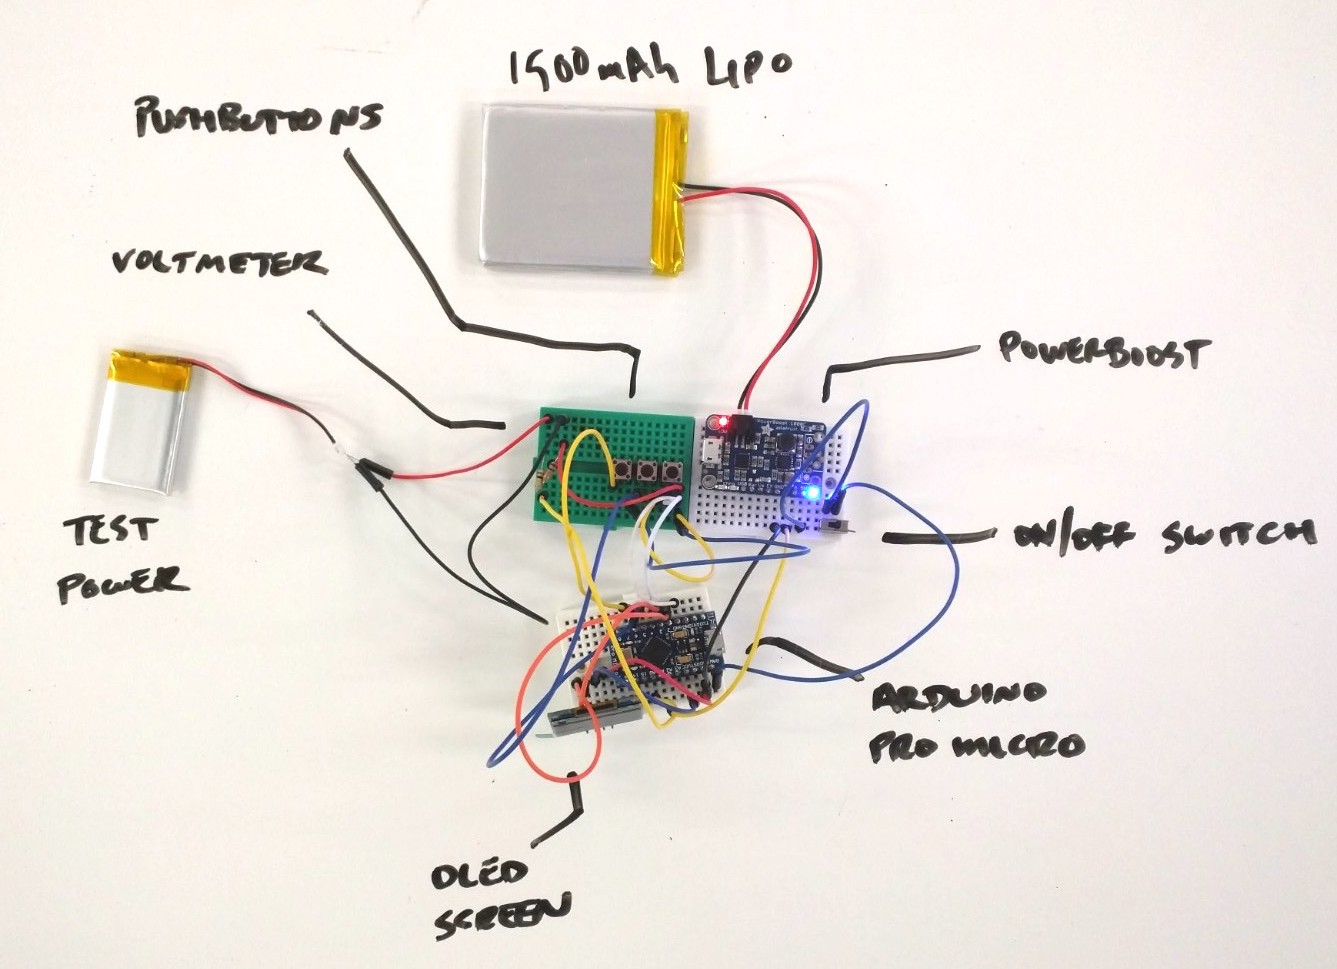 1900mAh LIPO
PUSHBUTTONS
VOLTMETER
POWERBOOST
TEST
POWER
ON/OFF SWITCH
ARDUINO
PRO MICRO
OLED
SCREEN